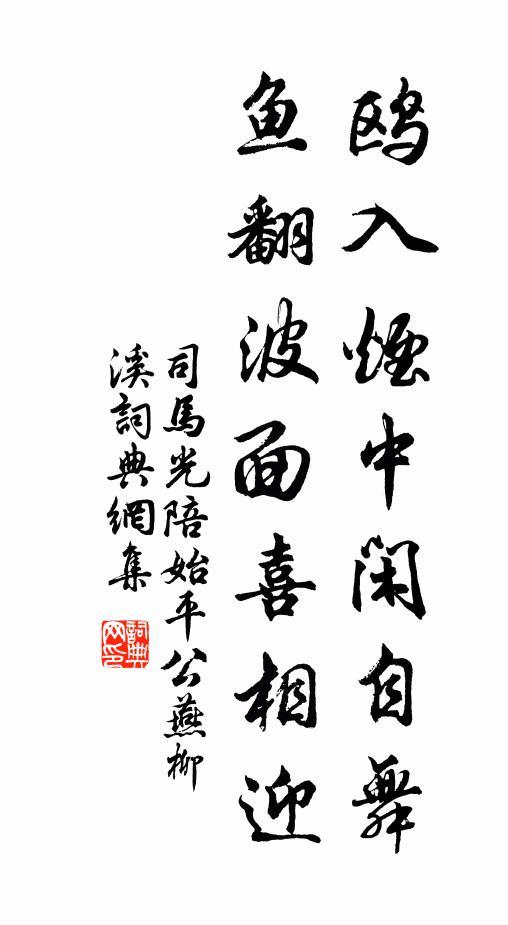 鸥入煙中闲自舞
鱼翻波面喜相迎
司馬光陪始平公燕柳
溪詞典網集
詞典
网印